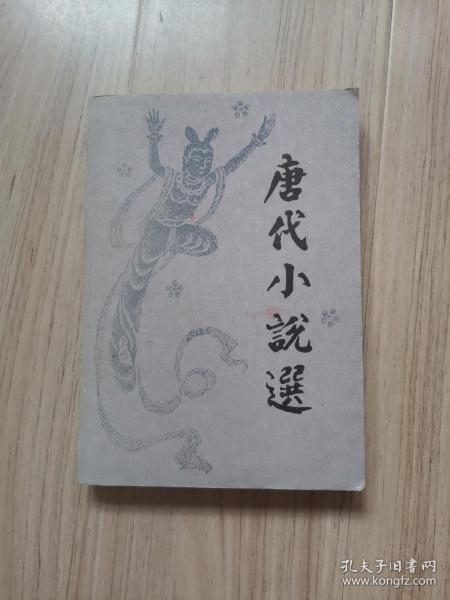 唐代小説選
孔夫子旧书网
www.kongfz.com